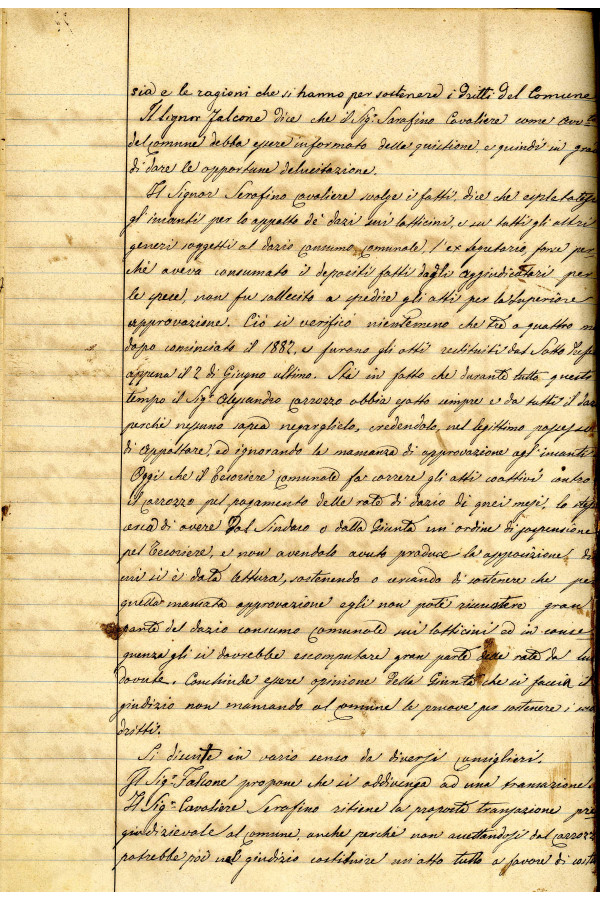 sia e le ragioni che si hanno per sostenere i dritti del Comune
Il Signor Falcone dice che il Sig.r Serafino Cavaliere come
del comune debba essere informato della quistione, e quindi in gra
di dare le opportune delucitazione.
Il Signor Serafino Cavaliere svolge i fatti, dice che espletatesi
gl'incanti per lo appalto de' dazi sui latticini, e su tutti gli altri
generi soggetti al dazio consumo comunale, l'ex segretario, forse per
chè aveva consumato i depositi fatti dagli aggiudicatari per
le spese, non fu sollecito a spedire gli atti per la superiore
approvazione. Ciò si verificò nientemeno che tre o quattro m
dopo cominciato il 1882, e furono gli atti restituiti dal Sotto Prefe
appena il 2 di Giugno ultimo. Sta in fatto che durante tutto questo
tempo il Sig.r Alessandro Carrozzo abbia esatto sempre e da tutti il daz
perchè nessuno sapea negarglielo, credendolo, nel legittimo possesso
di appaltare, ed ignorando la mananza di approvazione agl'incanti
Oggi che il Tesoriere comunale fa correre gli atti coattivi contro
il Carrozzo pel pagamento delle rate di dazio di quei mesi, lo stess
cerca di avere dal Sindaco o dalla Giunta un'ordine di sospensione
pel Tesoriere, e non avendolo avuto produce la opposizione di
cui si è data lettura, sostenendo o cercando di sostenere che pe
quella mancata approvazione egli non potè riscuotere gran
parte del dazio consumo comunale sui latticini ed in conse
guenza gli si dovrebbe escomputare gran parte delle rate da lui
dovute. Conchiude essere opinione della Giunta che si faccia il
giudizio non mancando al comune le pruove per sostenere i suoi
dritti.
Si discute in vario senso da diversi consiglieri.
Il Sig.r Falcone propone che si addivenga ad una transazione
Il Sig.r Cavaliere Serafino ritiene la proposta transazione pre
giudizievole al comune, anche perchè non accettandosi dal Carrozzo
potrebbe poi nel giudizio costituire un'atto tutto a favore di costu